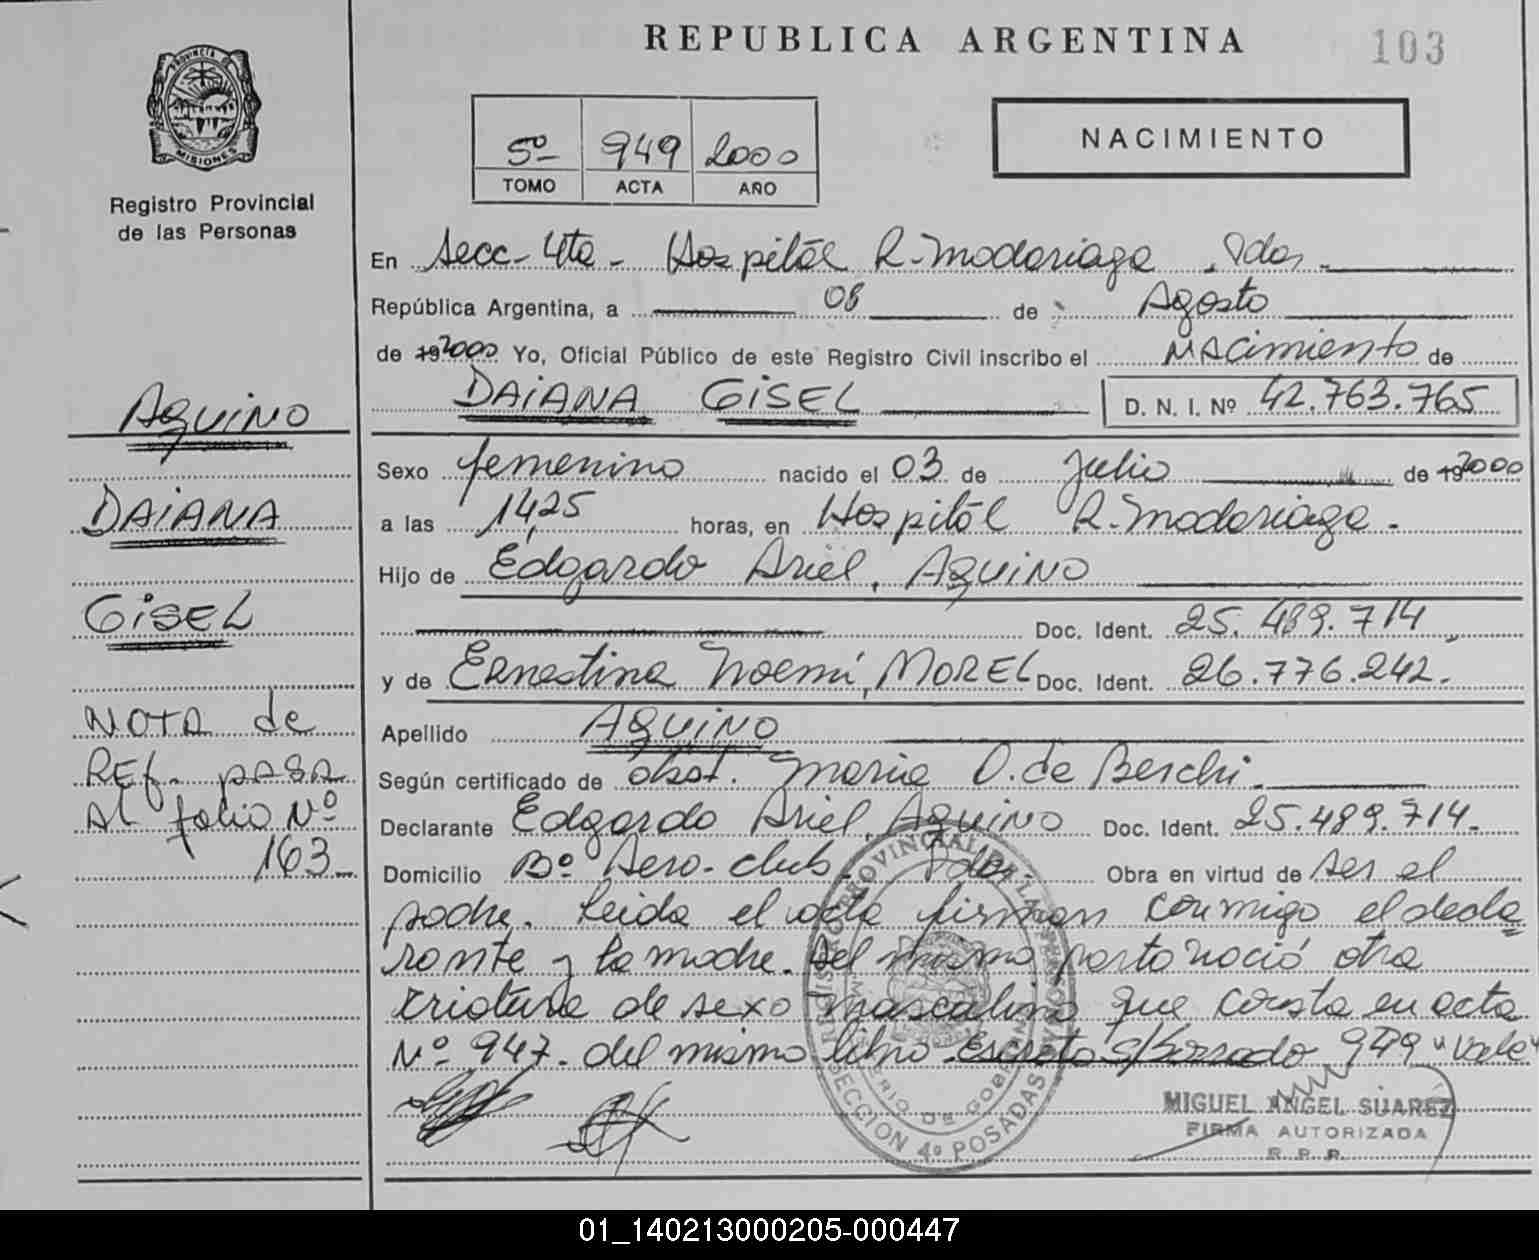 REPUBLICA ARGENTINA
103
PROVINCIA DE
MISIONES
Registro Provincial
de las Personas
5º 949 2000
TOMO ACTA AÑO
NACIMIENTO
En Secc. 4ta. Hospital R. Madariaga Pdas.
República Argentina, a 08 de Agosto
de 192000 Yo, Oficial Público de este Registro Civil inscribo el NACimiento de
DAiANA GiSEL D. N. I. Nº 42.763.765
Sexo femenino nacido el 03 de Julio de 192000
a las 14,25 horas, en Hospital R. Madariaga.
Hijo de Edgardo Ariel, AQUiNO
Doc. Ident. 25.489.714
y de Ernestina Noemí, MOREL Doc. Ident. 26.776.242.
Apellido AQUiNO
Según certificado de obst. Maria O. de Berchi.
Declarante Edgardo Ariel, Aquino Doc. Ident. 25.489.714.
Domicilio Bº Aero-club. Pdas. Obra en virtud de ser el
padre. Leida el acta firman conmigo el decla
rante y la madre. Del mismo parto nació otra
criatura de sexo masculino que consta en acta
Nº 947. del mismo libro. Escrito s/borrado 949 "Vale"
AQUiNO
DAiANA
GiSEL
NOTA de
REf. PASA
AL folio Nº
163
REGISTRO PROVINCIAL DE LAS PERSONAS
MINISTERIO DE GOBIERNO
SECCION 4º POSADAS
MIGUEL ANGEL SUAREZ
FIRMA AUTORIZADA
R. P. P.
01_140213000205-000447